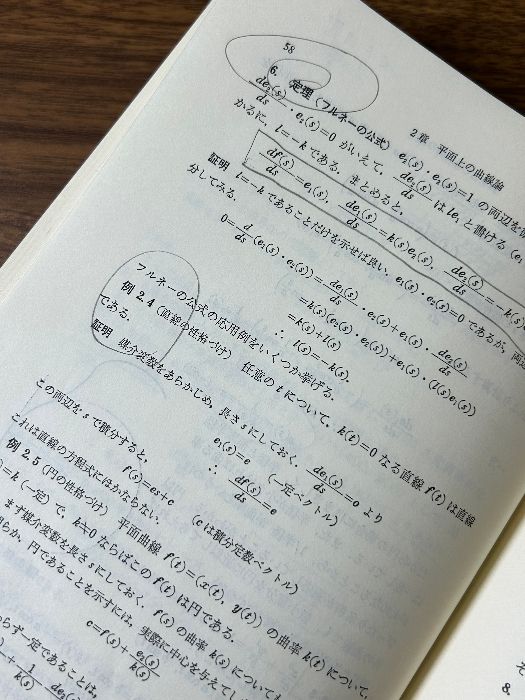 58
2章 平面上の曲線論
6. 定理 (フルネーの公式) e₁(s)・e₁(s)=1 の両辺を
de₂(s)/ds・e₂(s)=0 がいえて, de₂(s)/ds は le₁ と書ける (e₁
かるに, l=−k である. まとめると,
df(s)/ds=e₁(s), de₁(s)/ds=k(s)e₂(s), de₂(s)/ds=−k(s)
証明 l=−k であることだけを示せば良い. e₁(s)・e₂(s)=0 であるが, 両辺
分してみる.
0=d/ds(e₁(s)・e₂(s))=de₁(s)/ds・e₂(s)+e₁(s)・de₂(s)/ds
=k(s)(e₂(s)・e₂(s))+e₁(s)・(l(s)e₁(s))
=k(s)+l(s)
∴ l(s)=−k(s).
フルネーの公式の応用例をいくつか挙げる.
例 2.4 (直線の性格づけ) 任意の t について, k(t)=0 なる直線 f(t) は直線
である.
証明 媒介変数をあらかじめ, 長さ s にしておく. de₁(s)/ds=0 より
e₁(s)=e (一定ベクトル)
∴ df(s)/ds=e
この両辺を s で積分すると,
f(s)=es+c (c は積分定数ベクトル)
これは直線の方程式にほかならない.
例 2.5 (円の性格づけ) 平面曲線 f(t)=(x(t), y(t)) の曲率 k(t) について,
=k (一定) で, k≠0 ならばこの f(t) は円である.
まず媒介変数を長さ s にしておく. f(s) の曲率 k(s) についても
らか. 円であることを示すには, 実際に中心を与えてし
c=f(s)+e₂(s)/k(s)
らず一定であることは,
+1/k(s) de₂(s)
8.